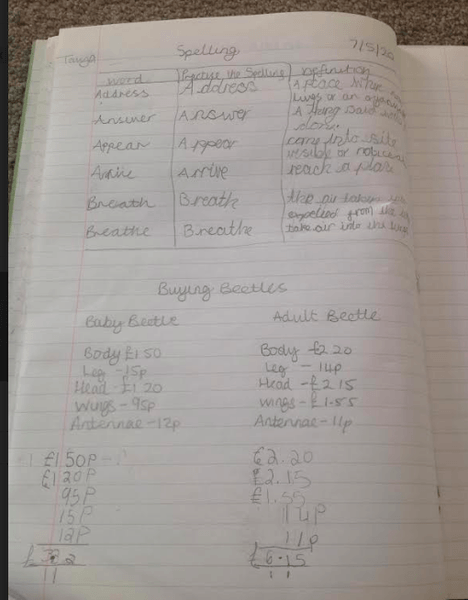 Tanya Spelling 7/5/20
Word Practise the Spelling Definition
Address Address A place where
lives or an
Answer Answer A thing said
Appear Appear come into site
visible or
Arrive Arrive reach a place
Breath Breath the air taken
expelled from the
Breathe Breathe take air into the
Buying Beetles
Baby Beetle Adult Beetle
Body £1.50 Body £2.20
Leg - 15p Leg - 14p
Head - £1.20 Head - £2.15
Wings - 95p Wings - £1.55
Antennae - 12p Antennae - 11p
£1.50P £2.20
£1.20P £2.15
95P £1.55
15P 14P
12P 11p
£6.15
11 11